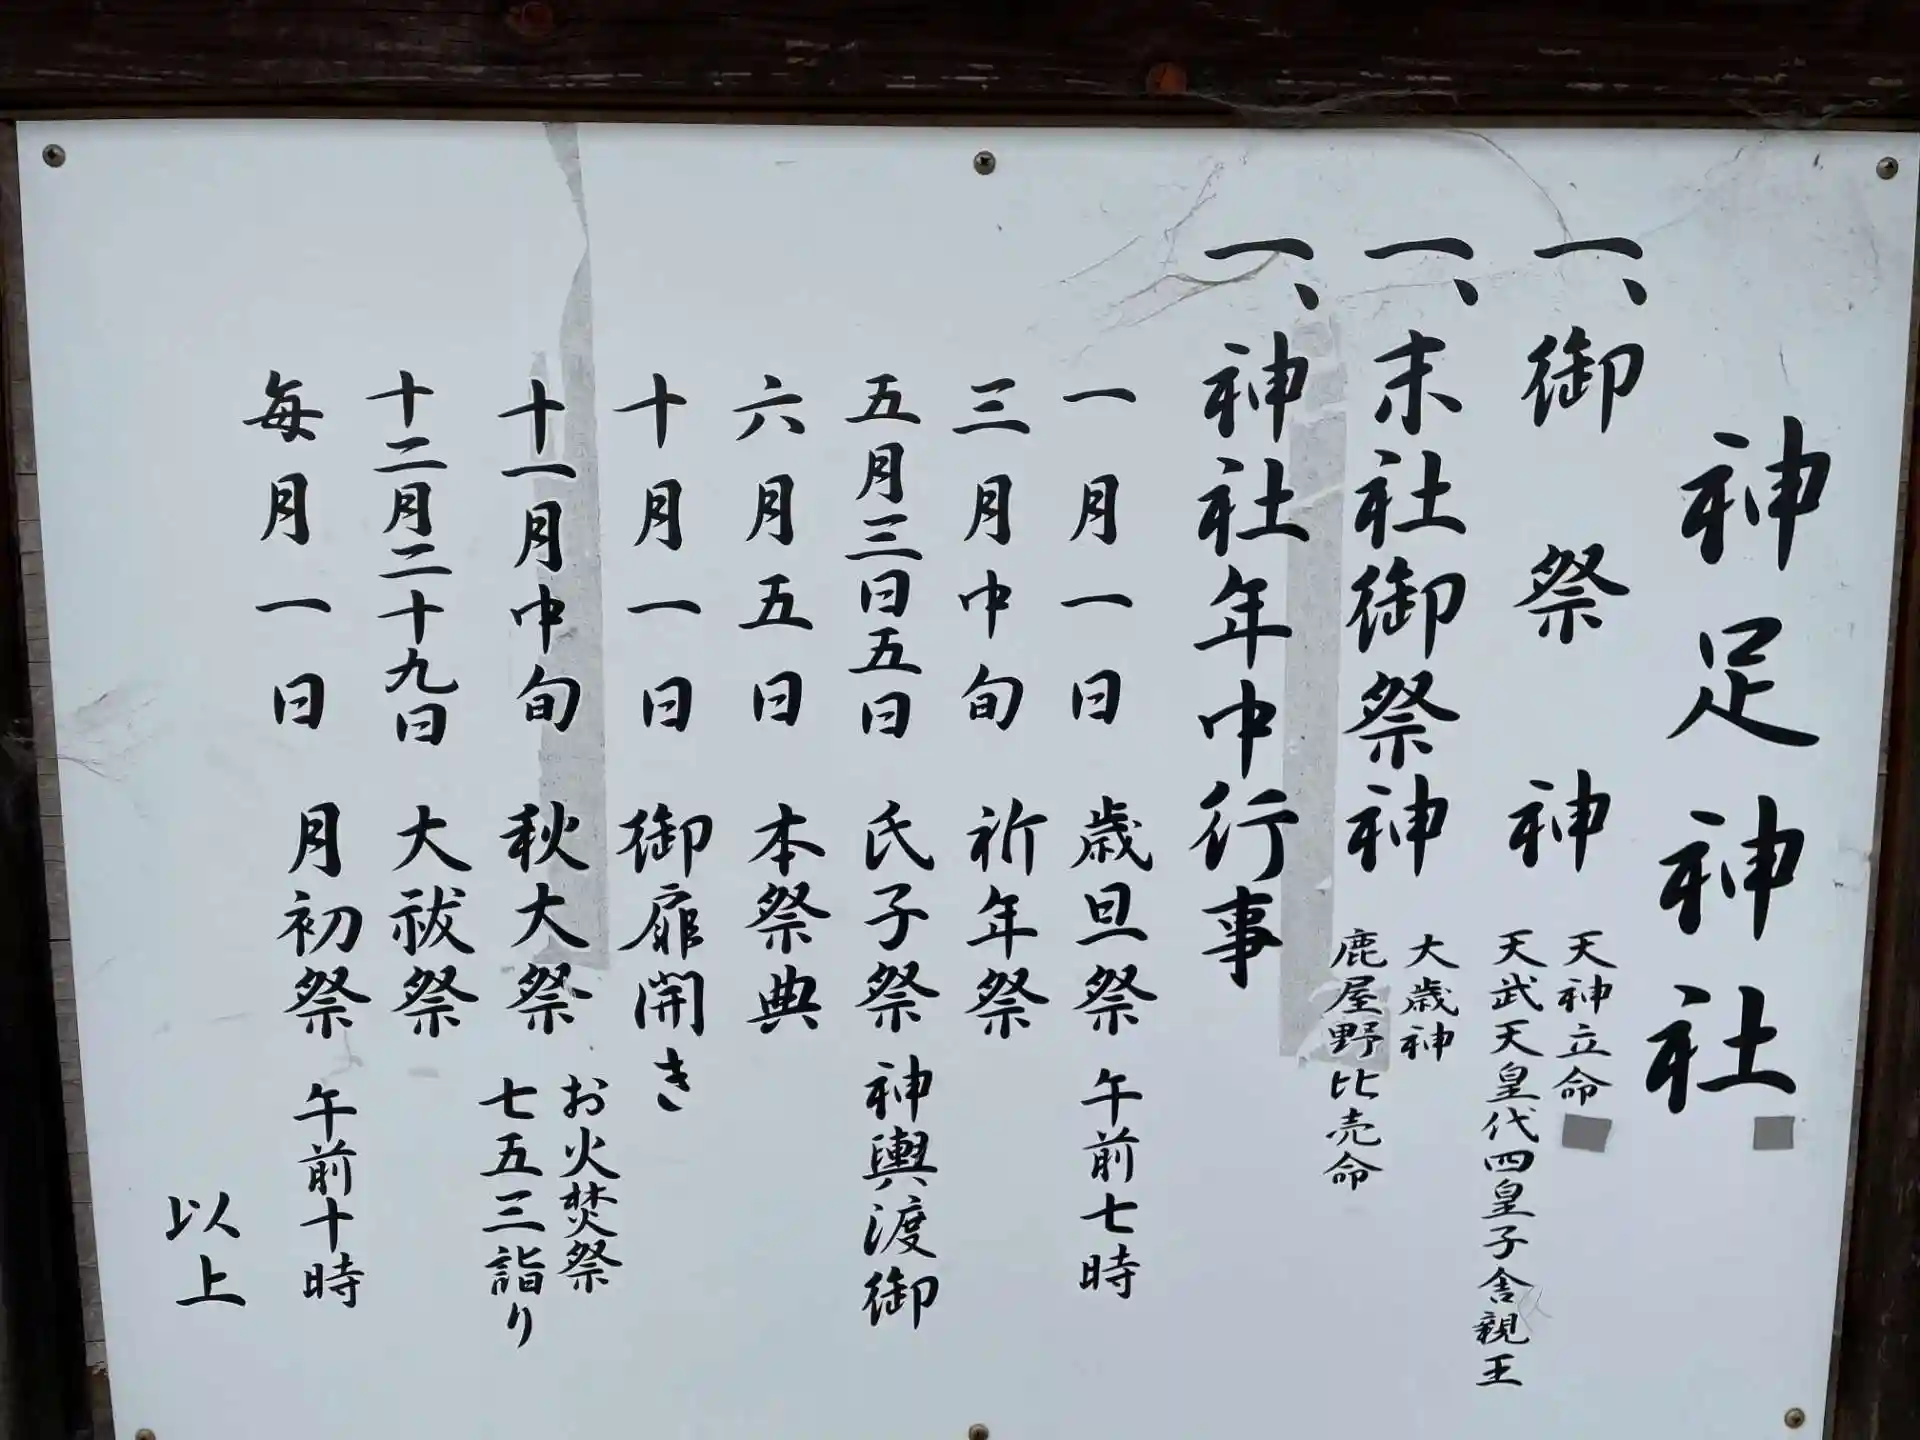 神足神社
一、御祭神
天神立命
天武天皇代四皇子舎親王
一、末社御祭神
大歳神
鹿屋野比売命
一、神社年中行事
一月一日 歳旦祭 午前七時
三月中旬 祈年祭
五月三日五日 氏子祭 神輿渡御
六月五日 本祭典
十月一日 御扉開き
十一月中旬 秋大祭
お火焚祭
七五三詣り
十二月二十九日 大祓祭
毎月一日 月初祭 午前十時
以上